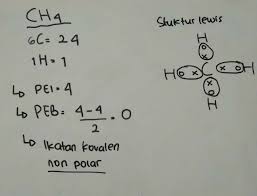 CH4
6C = 2 4
1H = 1
↳ PEI = 4
↳ PEB = 4-4/2 = 0
↳ Ikatan kovalen
non polar
Stuktur lewis
H
H C H
H